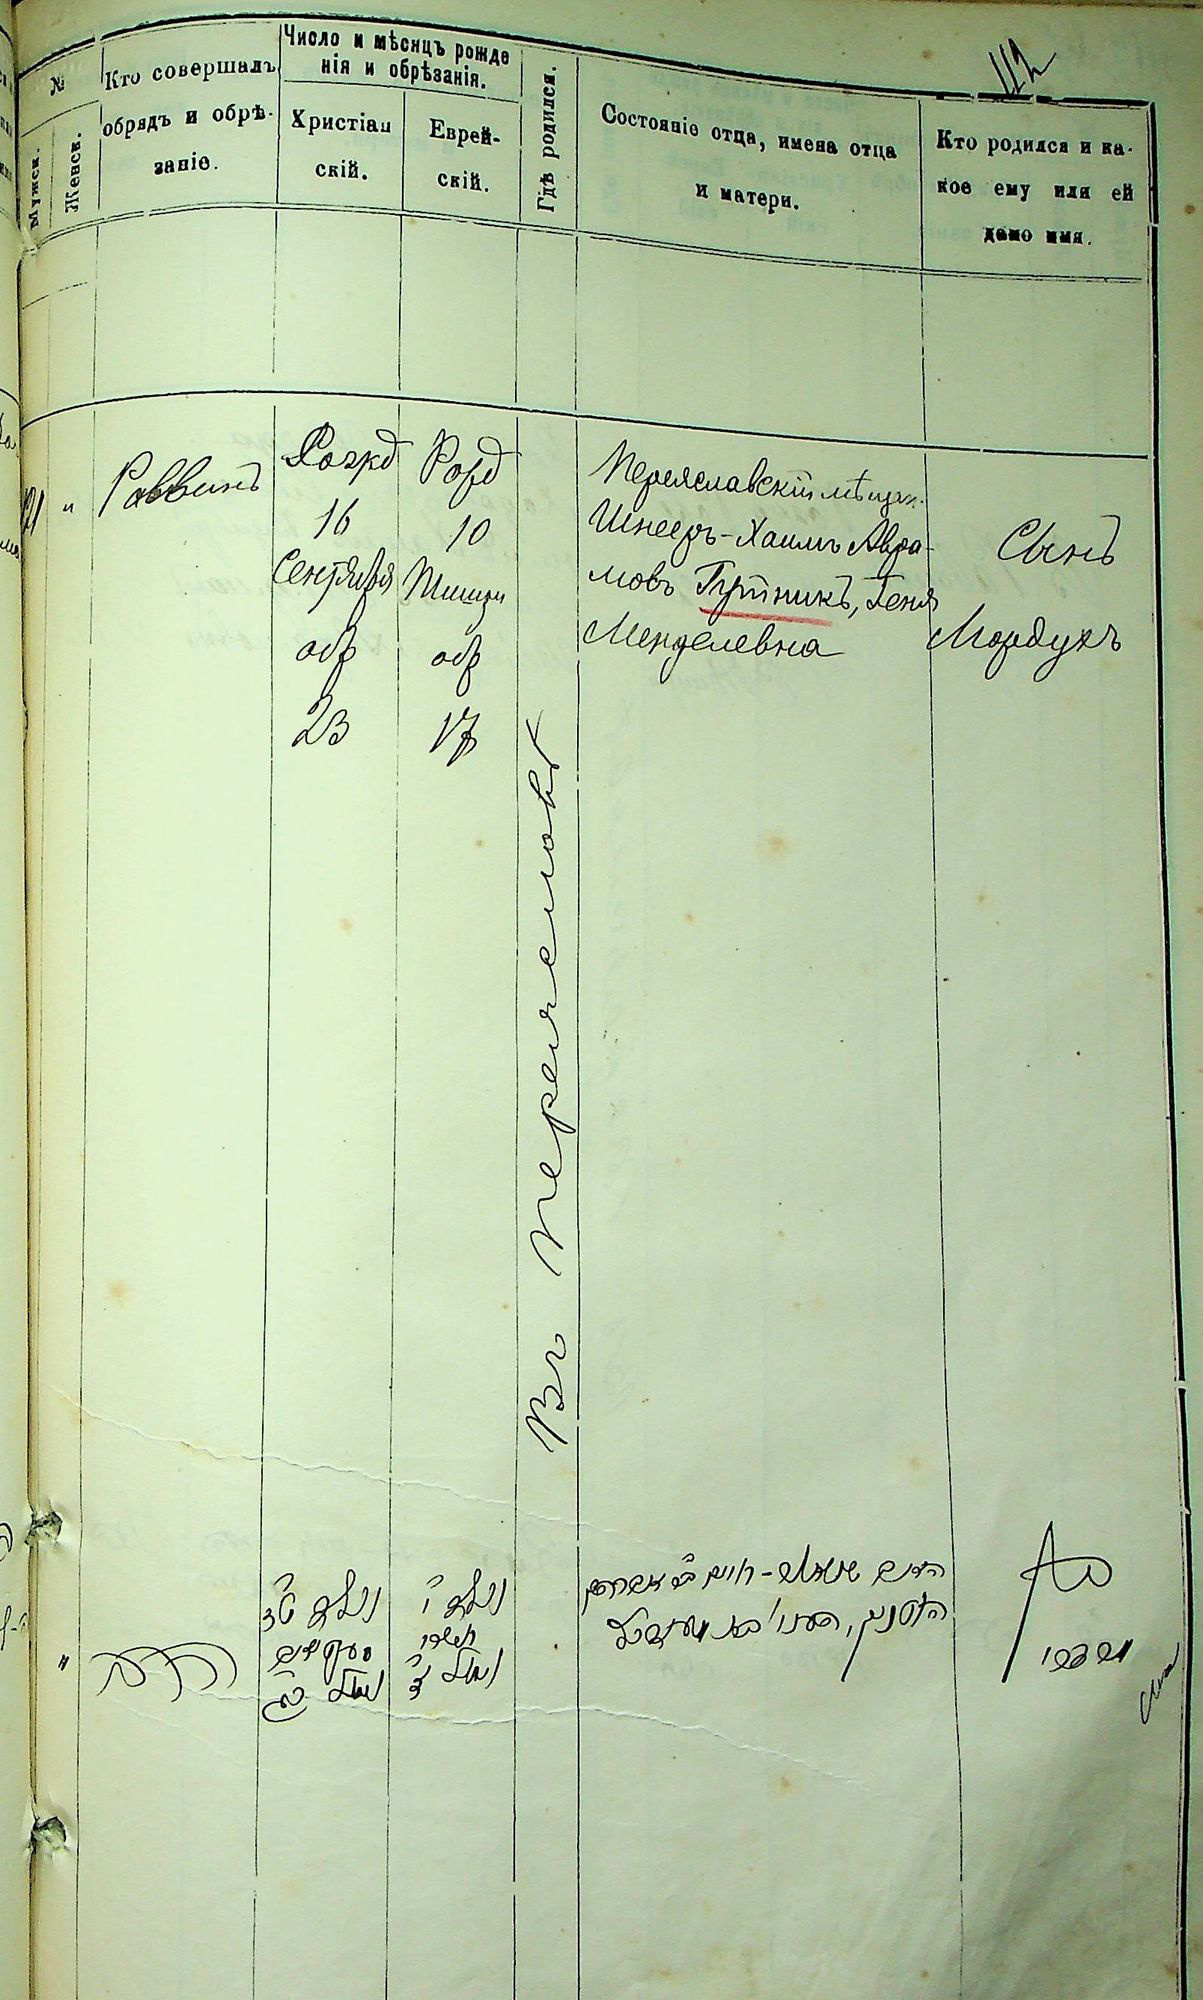 112
№
Мужск.
Женск.
Кто совершалъ
обрядъ и обрѣ-
заніе.
Число и мѣсяцъ рожде
нія и обрѣзанія.
Христіан
скій.
Еврей-
скій.
Гдѣ родился.
Состояніе отца, имена отца
и матери.
Кто родился и ка-
кое ему или ей
дано имя.
21 "
Раввинъ
Рожд
16
Сентября
обр
23
Рожд
10
Тишри
обр
17
Въ Переяславѣ
Переяславскій мѣщан.
Шнееръ-Хаимъ Авра-
мовъ Гутникъ, Геня
Менделевна
Сынъ
Мордухъ
"
נולד
נולד י
תשרי
נימול
חיים
בן
מרדכי